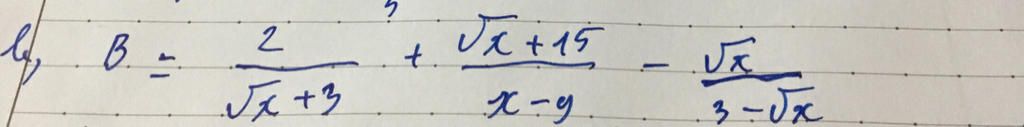 b, B = \frac{2}{\sqrt{x}+3} + \frac{\sqrt{x}+15}{x-9} - \frac{\sqrt{x}}{3-\sqrt{x}}